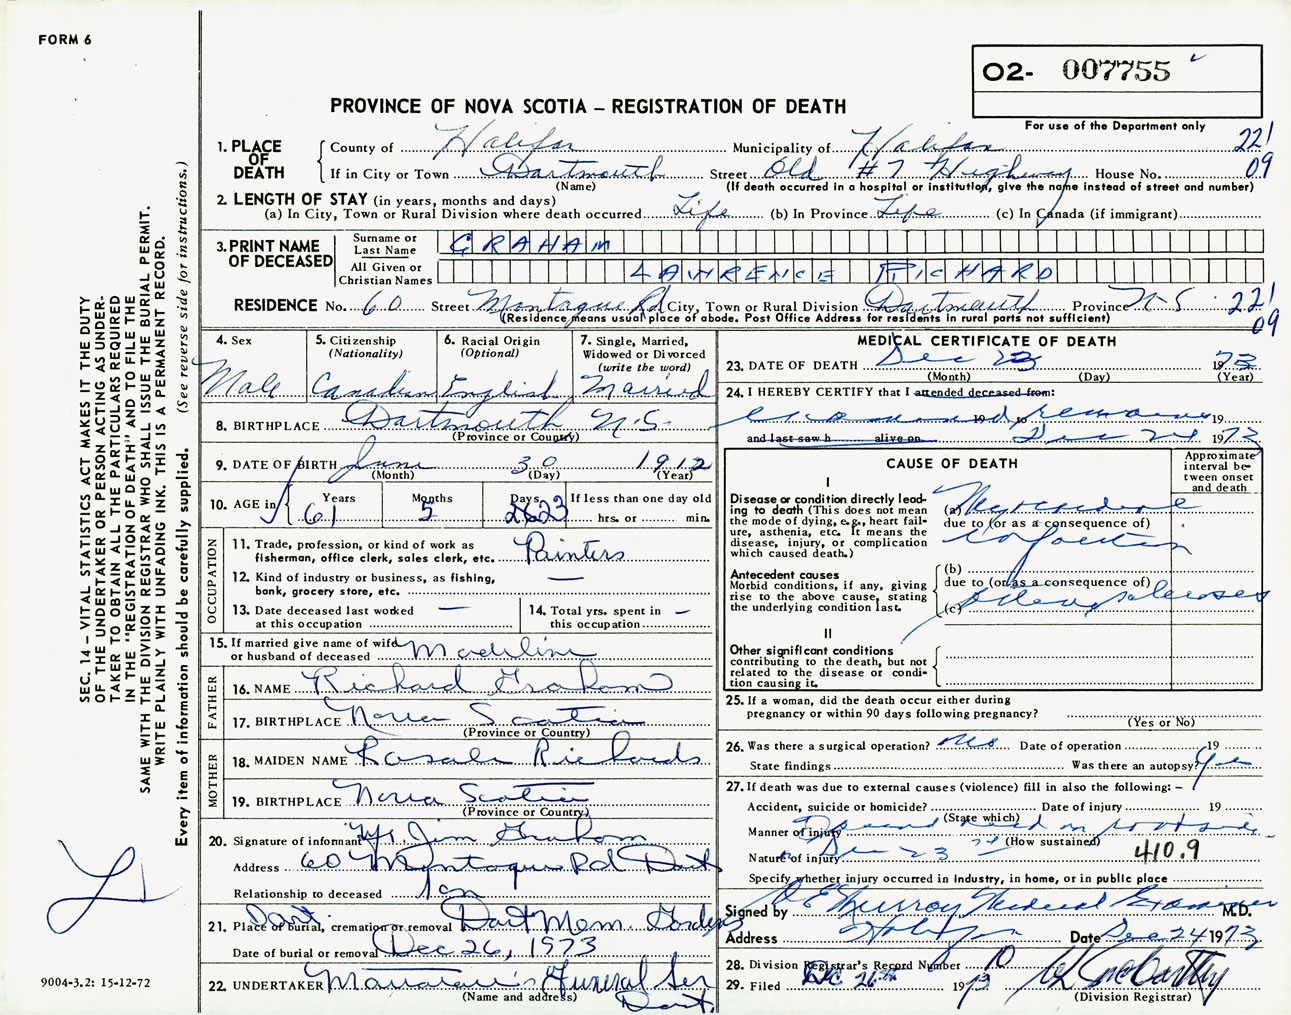 FORM 6
O2- 007755
PROVINCE OF NOVA SCOTIA – REGISTRATION OF DEATH
For use of the Department only
1. PLACE OF DEATH
County of Halifax Municipality of Halifax 221
If in City or Town Dartmouth Street Old #7 Highway House No. 09
(Name) (If death occurred in a hospital or institution, give the name instead of street and number)
2. LENGTH OF STAY (in years, months and days)
(a) In City, Town or Rural Division where death occurred Life (b) In Province Life (c) In Canada (if immigrant)
3. PRINT NAME OF DECEASED
Surname or Last Name GRAHAM
All Given or Christian Names LAWRENCE RICHARD
RESIDENCE No. 60 Street Montague Rd City, Town or Rural Division Dartmouth Province N S 221
(Residence means usual place of abode. Post Office Address for residents in rural parts not sufficient) 09
4. Sex
Male
5. Citizenship (Nationality)
Canadian
6. Racial Origin (Optional)
English
7. Single, Married, Widowed or Divorced (write the word)
Married
8. BIRTHPLACE Dartmouth N.S.
(Province or Country)
9. DATE OF BIRTH June 30 1912
(Month) (Day) (Year)
10. AGE in Years 61 Months 5 Days 23
If less than one day old
hrs. or min.
OCCUPATION
11. Trade, profession, or kind of work as Painters
fisherman, office clerk, sales clerk, etc.
12. Kind of industry or business, as fishing, —
bank, grocery store, etc.
13. Date deceased last worked —
at this occupation
14. Total yrs. spent in —
this occupation
15. If married give name of wife Madeline
or husband of deceased
FATHER
16. NAME Richard Graham
17. BIRTHPLACE Nova Scotia
(Province or Country)
MOTHER
18. MAIDEN NAME Rosale Richards
19. BIRTHPLACE Nova Scotia
(Province or Country)
20. Signature of informant Mr. Jim Graham
Address 60 Montague Rd Dart
Relationship to deceased Son
21. Place of burial, cremation or removal Dart. Dart Mem. Gardens
Date of burial or removal Dec 26, 1973
22. UNDERTAKER Funeral Ser
(Name and address) Dart.
MEDICAL CERTIFICATE OF DEATH
23. DATE OF DEATH Dec 23 1973
(Month) (Day) (Year)
24. I HEREBY CERTIFY that I attended deceased from:
examined remains 19
and last saw h alive on Dec 24 1973
CAUSE OF DEATH
Approximate interval between onset and death
I
Disease or condition directly lead-
ing to death (This does not mean
the mode of dying, e.g., heart fail-
ure, asthenia, etc. It means the
disease, injury, or complication
which caused death.)
(a) Myocardial
due to (or as a consequence of)
infarction
Antecedent causes
Morbid conditions, if any, giving
rise to the above cause, stating
the underlying condition last.
(b)
due to (or as a consequence of)
(c)
II
Other significant conditions
contributing to the death, but not
related to the disease or condi-
tion causing it.
25. If a woman, did the death occur either during
pregnancy or within 90 days following pregnancy?
(Yes or No)
26. Was there a surgical operation? no Date of operation 19
State findings Was there an autopsy? yes
27. If death was due to external causes (violence) fill in also the following: –
Accident, suicide or homicide? Date of injury 19
(State which)
Manner of injury
(How sustained)
Nature of injury Dec 23 410.9
Specify whether injury occurred in industry, in home, or in public place
Signed by Murray Medical Examiner M.D.
Address Halifax Date Dec 24 1973
28. Division Registrar's Record Number 10
29. Filed Dec 26th 1973
(Division Registrar)
SEC. 14 – VITAL STATISTICS ACT MAKES IT THE DUTY
OF THE UNDERTAKER OR PERSON ACTING AS UNDER-
TAKER TO OBTAIN ALL THE PARTICULARS REQUIRED
IN THE "REGISTRATION OF DEATH" AND TO FILE THE
SAME WITH THE DIVISION REGISTRAR WHO SHALL ISSUE THE BURIAL PERMIT.
WRITE PLAINLY WITH UNFADING INK. THIS IS A PERMANENT RECORD.
Every item of information should be carefully supplied. (See reverse side for instructions.)
9004-3.2: 15-12-72